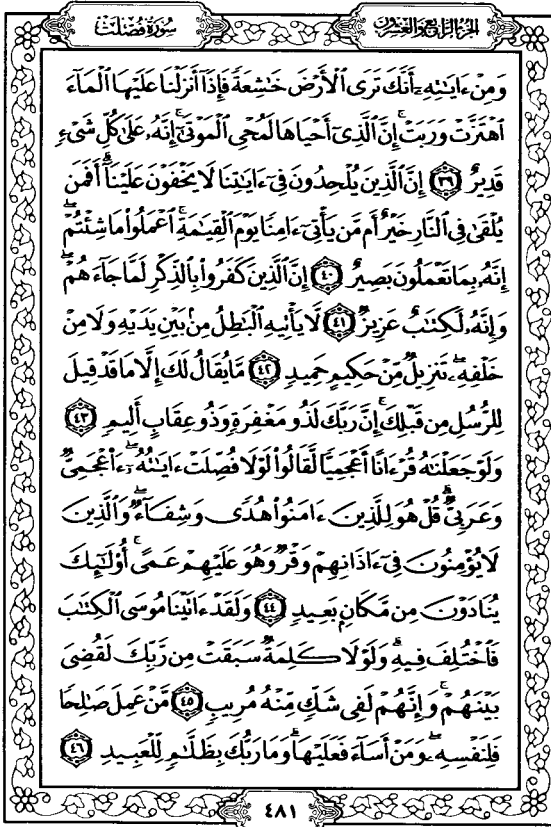 سُورَةُ فُصِّلَتْ الجزء الرابع والعشرون
وَمِنْ ءَايَٰتِهِۦٓ أَنَّكَ تَرَى ٱلْأَرْضَ خَٰشِعَةً فَإِذَآ أَنزَلْنَا عَلَيْهَا ٱلْمَآءَ
ٱهْتَزَّتْ وَرَبَتْ ۚ إِنَّ ٱلَّذِىٓ أَحْيَاهَا لَمُحْىِ ٱلْمَوْتَىٰٓ ۚ إِنَّهُۥ عَلَىٰ كُلِّ شَىْءٍ
قَدِيرٌ ٣٩ إِنَّ ٱلَّذِينَ يُلْحِدُونَ فِىٓ ءَايَٰتِنَا لَا يَخْفَوْنَ عَلَيْنَآ ۗ أَفَمَن
يُلْقَىٰ فِى ٱلنَّارِ خَيْرٌ أَم مَّن يَأْتِىٓ ءَامِنًا يَوْمَ ٱلْقِيَٰمَةِ ۚ ٱعْمَلُوا۟ مَا شِئْتُمْ ۖ
إِنَّهُۥ بِمَا تَعْمَلُونَ بَصِيرٌ ٤٠ إِنَّ ٱلَّذِينَ كَفَرُوا۟ بِٱلذِّكْرِ لَمَّا جَآءَهُمْ ۖ
وَإِنَّهُۥ لَكِتَٰبٌ عَزِيزٌ ٤١ لَّا يَأْتِيهِ ٱلْبَٰطِلُ مِنۢ بَيْنِ يَدَيْهِ وَلَا مِنْ
خَلْفِهِۦ ۖ تَنزِيلٌ مِّنْ حَكِيمٍ حَمِيدٍ ٤٢ مَّا يُقَالُ لَكَ إِلَّا مَا قَدْ قِيلَ
لِلرُّسُلِ مِن قَبْلِكَ ۚ إِنَّ رَبَّكَ لَذُو مَغْفِرَةٍ وَذُو عِقَابٍ أَلِيمٍ ٤٣
وَلَوْ جَعَلْنَٰهُ قُرْءَانًا أَعْجَمِيًّا لَّقَالُوا۟ لَوْلَا فُصِّلَتْ ءَايَٰتُهُۥٓ ۖ ءَا۬عْجَمِىٌّ
وَعَرَبِىٌّ ۗ قُلْ هُوَ لِلَّذِينَ ءَامَنُوا۟ هُدًى وَشِفَآءٌ ۖ وَٱلَّذِينَ
لَا يُؤْمِنُونَ فِىٓ ءَاذَانِهِمْ وَقْرٌ وَهُوَ عَلَيْهِمْ عَمًى ۚ أُو۟لَٰٓئِكَ
يُنَادَوْنَ مِن مَّكَانٍۭ بَعِيدٍ ٤٤ وَلَقَدْ ءَاتَيْنَا مُوسَى ٱلْكِتَٰبَ
فَٱخْتُلِفَ فِيهِ ۗ وَلَوْلَا كَلِمَةٌ سَبَقَتْ مِن رَّبِّكَ لَقُضِىَ
بَيْنَهُمْ ۚ وَإِنَّهُمْ لَفِى شَكٍّ مِّنْهُ مُرِيبٍ ٤٥ مَّنْ عَمِلَ صَٰلِحًا
فَلِنَفْسِهِۦ ۖ وَمَنْ أَسَآءَ فَعَلَيْهَا ۗ وَمَا رَبُّكَ بِظَلَّٰمٍ لِّلْعَبِيدِ ٤٦
٤٨١